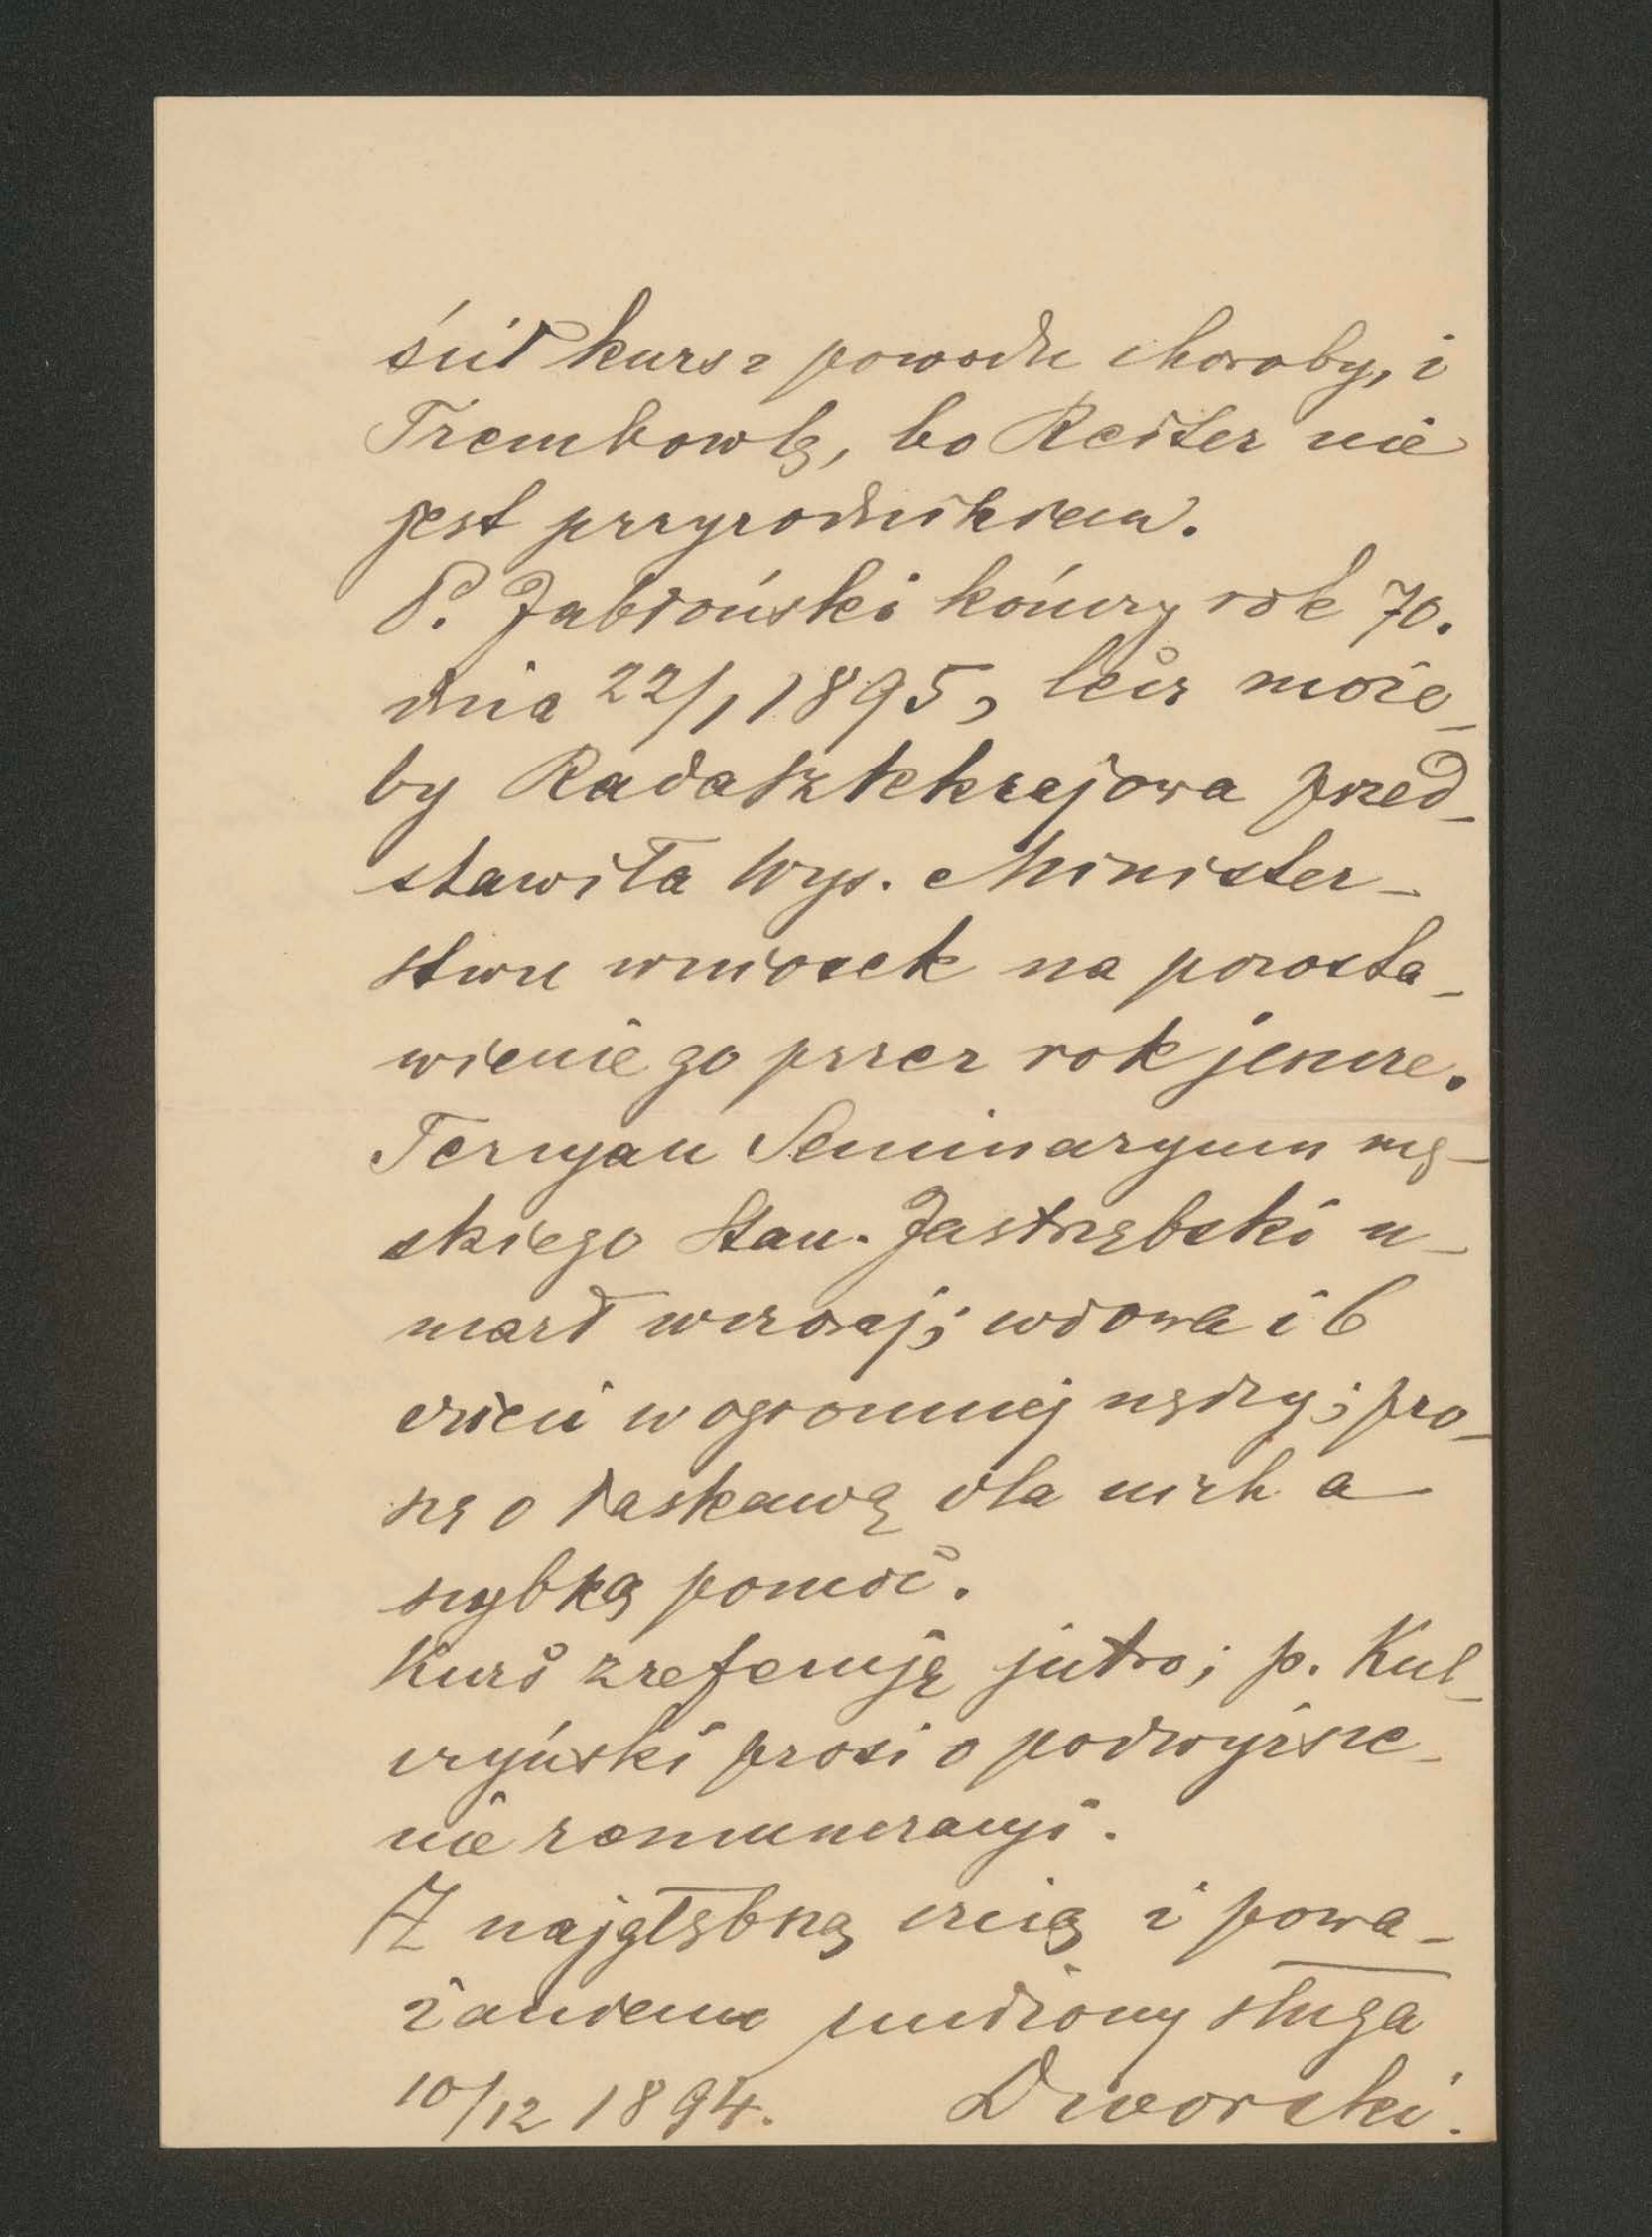 ścił kurs z powodu choroby, i
Trembowlę, bo Reiter nie
jest przyrodnikiem.
P. Jabłoński kończy rok 70.
dnia 22/1 1895, lecz może
by Rada szk krajowa przed_
stawiła Wys. Minister_
stwu wniosek na pozosta_
wienie go przez rok jeszcze.
Tercyan Seminaryum mę_
skiego Stan. Jastrzębski u_
marł wczoraj; wdowa i 6
dzieci w ogromnej nędzy; pro_
szę o łaskawą dla nich a
szybką pomoc.
Kurs zreferuję jutro; p. Kul_
czyński prosi o podwyższe_
nie remuneracyi.
Z najgłębszą czcią i powa_
żaniem uniżony sługa
10/12 1894. Dworski.